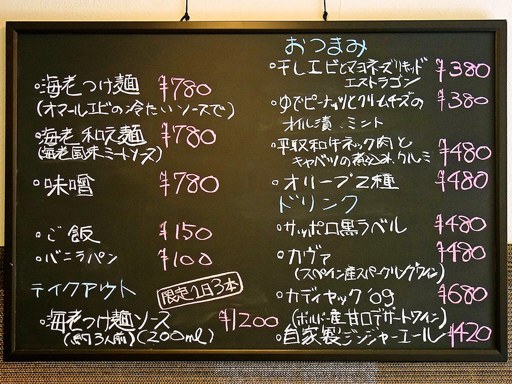 ・海老つけ麺 ¥780
(オマールエビの冷たいソースで)
・海老和え麺 ¥780
(海老風味ミートソース)
・味噌 ¥780
・ご飯 ¥150
・バニラパン ¥100
テイクアウト 限定1日3本
・海老つけ麺ソース ¥1200
(約3人前)(200ml)
おつまみ
・干しエビとマヨネーズリキッド ¥380
エストラゴン
・ゆでピーナッツとクリームチーズの ¥380
オイル漬、ミント
・平取和牛ネック肉と
キャベツの煮込み、クルミ ¥480
・オリーブ2種 ¥480
ドリンク
・サッポロ黒ラベル ¥480
・カヴァ ¥480
(スペイン産スパークリングワイン)
・カディヤック'09 ¥680
(ボルドー産甘口デザートワイン)
・自家製ジンジャーエール ¥420